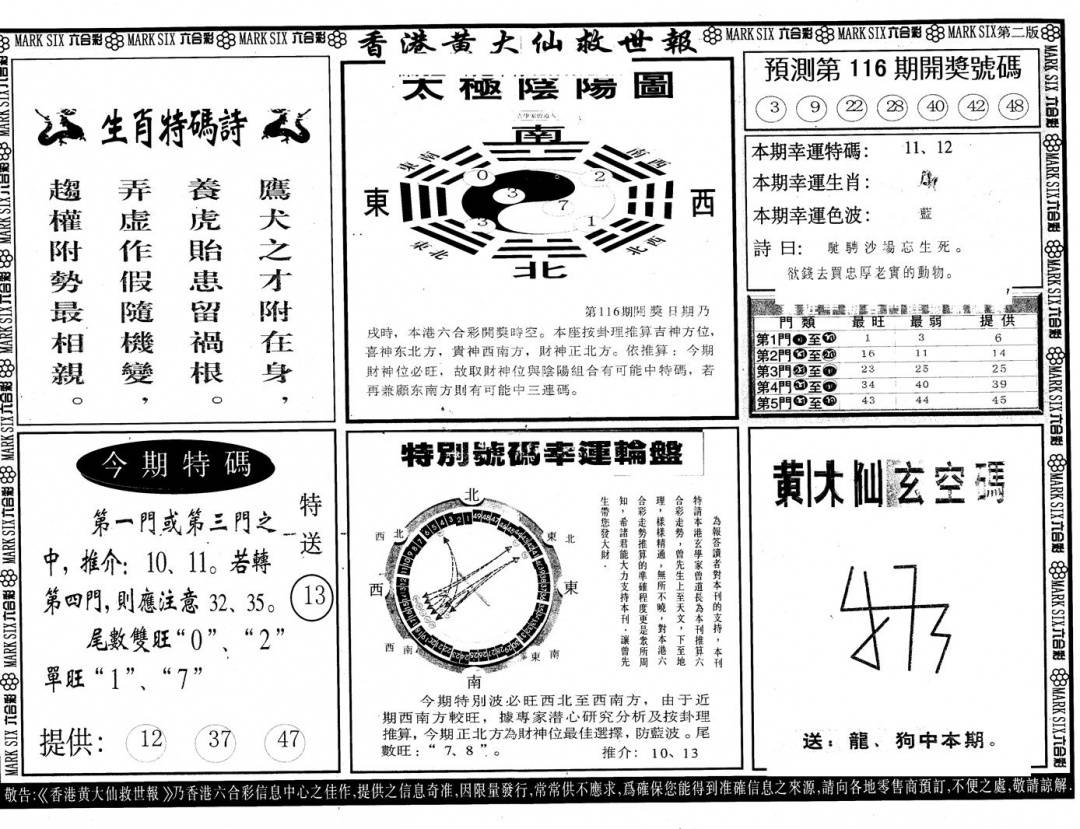 MARK SIX 六合彩 MARK SIX 六合彩 MARK SIX 六合彩
香港黃大仙救世報
MARK SIX 六合彩 MARK SIX 六合彩 MARK SIX 第二版
生肖特碼詩
鷹犬之才附在身，
養虎貽患留禍根。
弄虛作假隨機變，
趨權附勢最相親。
太極陰陽圖
南
東南
西南
東
西
東北
西北
北
0
2
3
7
3
1
第116期開獎日期乃
戌時，本港六合彩開獎時空。本座按卦理推算吉神方位，
喜神东北方，貴神西南方，財神正北方。依推算：今期
財神位必旺，故取財神位與陰陽組合有可能中特碼，若
再兼顧东南方則有可能中三連碼。
預測第116期開獎號碼
3 9 22 28 40 42 48
本期幸運特碼： 11、12
本期幸運生肖：
本期幸運色波： 藍
詩曰： 馳騁沙場忘生死。
欲錢去買忠厚老實的動物。
門類 最旺 最弱 提供
第1門 至 1 3 6
第2門 至 16 11 14
第3門 至 23 25 25
第4門 至 34 40 39
第5門 至 43 44 45
今期特碼
第一門或第三門之
中，推介：10、11。若轉
第四門，則應注意 32、35。
尾數雙旺“0”、“2”
單旺“1”、“7”
特送
13
提供： 12 37 47
特別號碼幸運輪盤
北
西北
東北
西
東
西南
東南
南
為報答讀者對本刊的支持，本刊
特請本港玄學家曾道長為本刊推算六
合彩走勢，曾先生上至天文，下至地
理，樣樣精通，無所不曉，對本港六
合彩走勢推算的準確程度更是眾所周
知，希諸君能大力支持本刊，讓曾先
生帶您發大財．
今期特別波必旺西北至西南方，由于近
期西南方較旺，據專家潜心研究分析及按卦理
推算，今期正北方為財神位最佳選擇，防藍波。尾
數旺：“7、8”。 推介：10、13
黃大仙玄空碼
送：龍、狗中本期。
敬告：《香港黃大仙救世報》乃香港六合彩信息中心之佳作，提供之信息奇准，因限量發行，常常供不應求，爲確保您能得到准確信息之來源，請向各地零售商預訂，不便之處，敬請諒解．